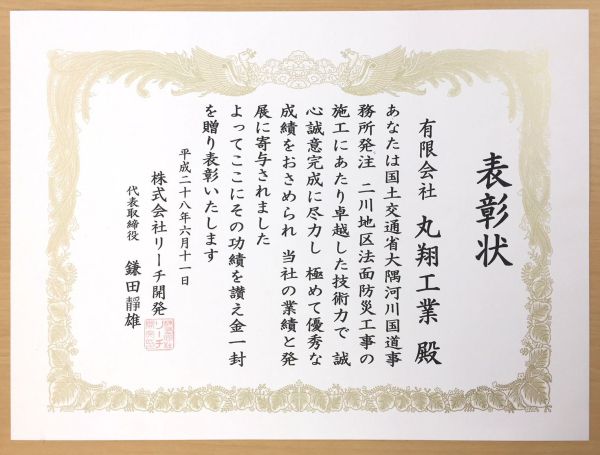 表彰状
有限会社 丸翔工業 殿
あなたは国土交通省大隅河川国道事
務所発注 二川地区法面防災工事の
施工にあたり卓越した技術力で 誠
心誠意完成に尽力し 極めて優秀な
成績をおさめられ 当社の業績と発
展に寄与されました
よってここにその功績を讃え金一封
を贈り表彰いたします
平成二十八年六月十一日
株式会社リーチ開発
代表取締役 鎌田靜雄
リーチ